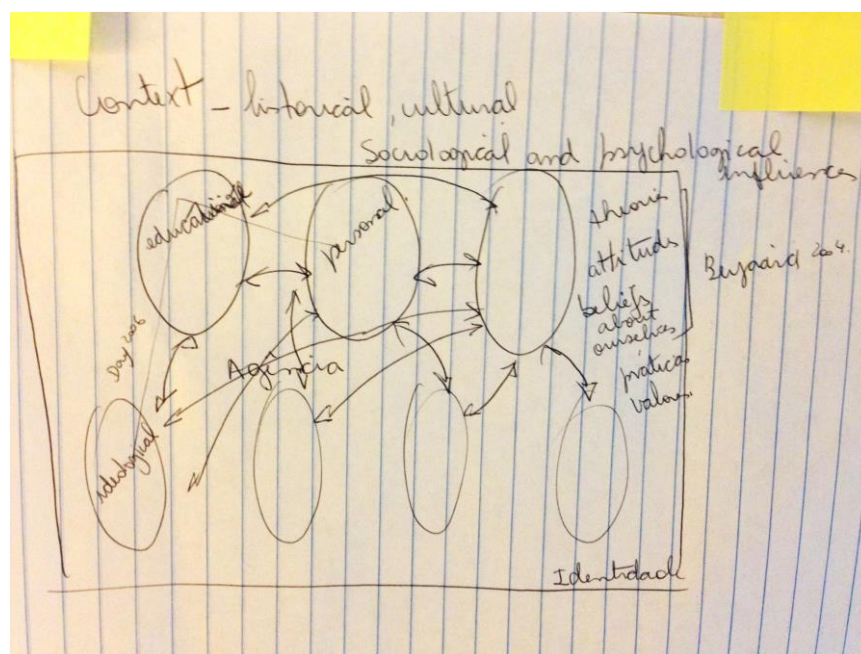 Context - historical, cultural
Sociological and psychological
influences
educational
personal
theories
attitudes
beliefs
about
ourselves
práticas
valores.
Beijaard 2004.
Day 2006
Agência
ideological
Identidade